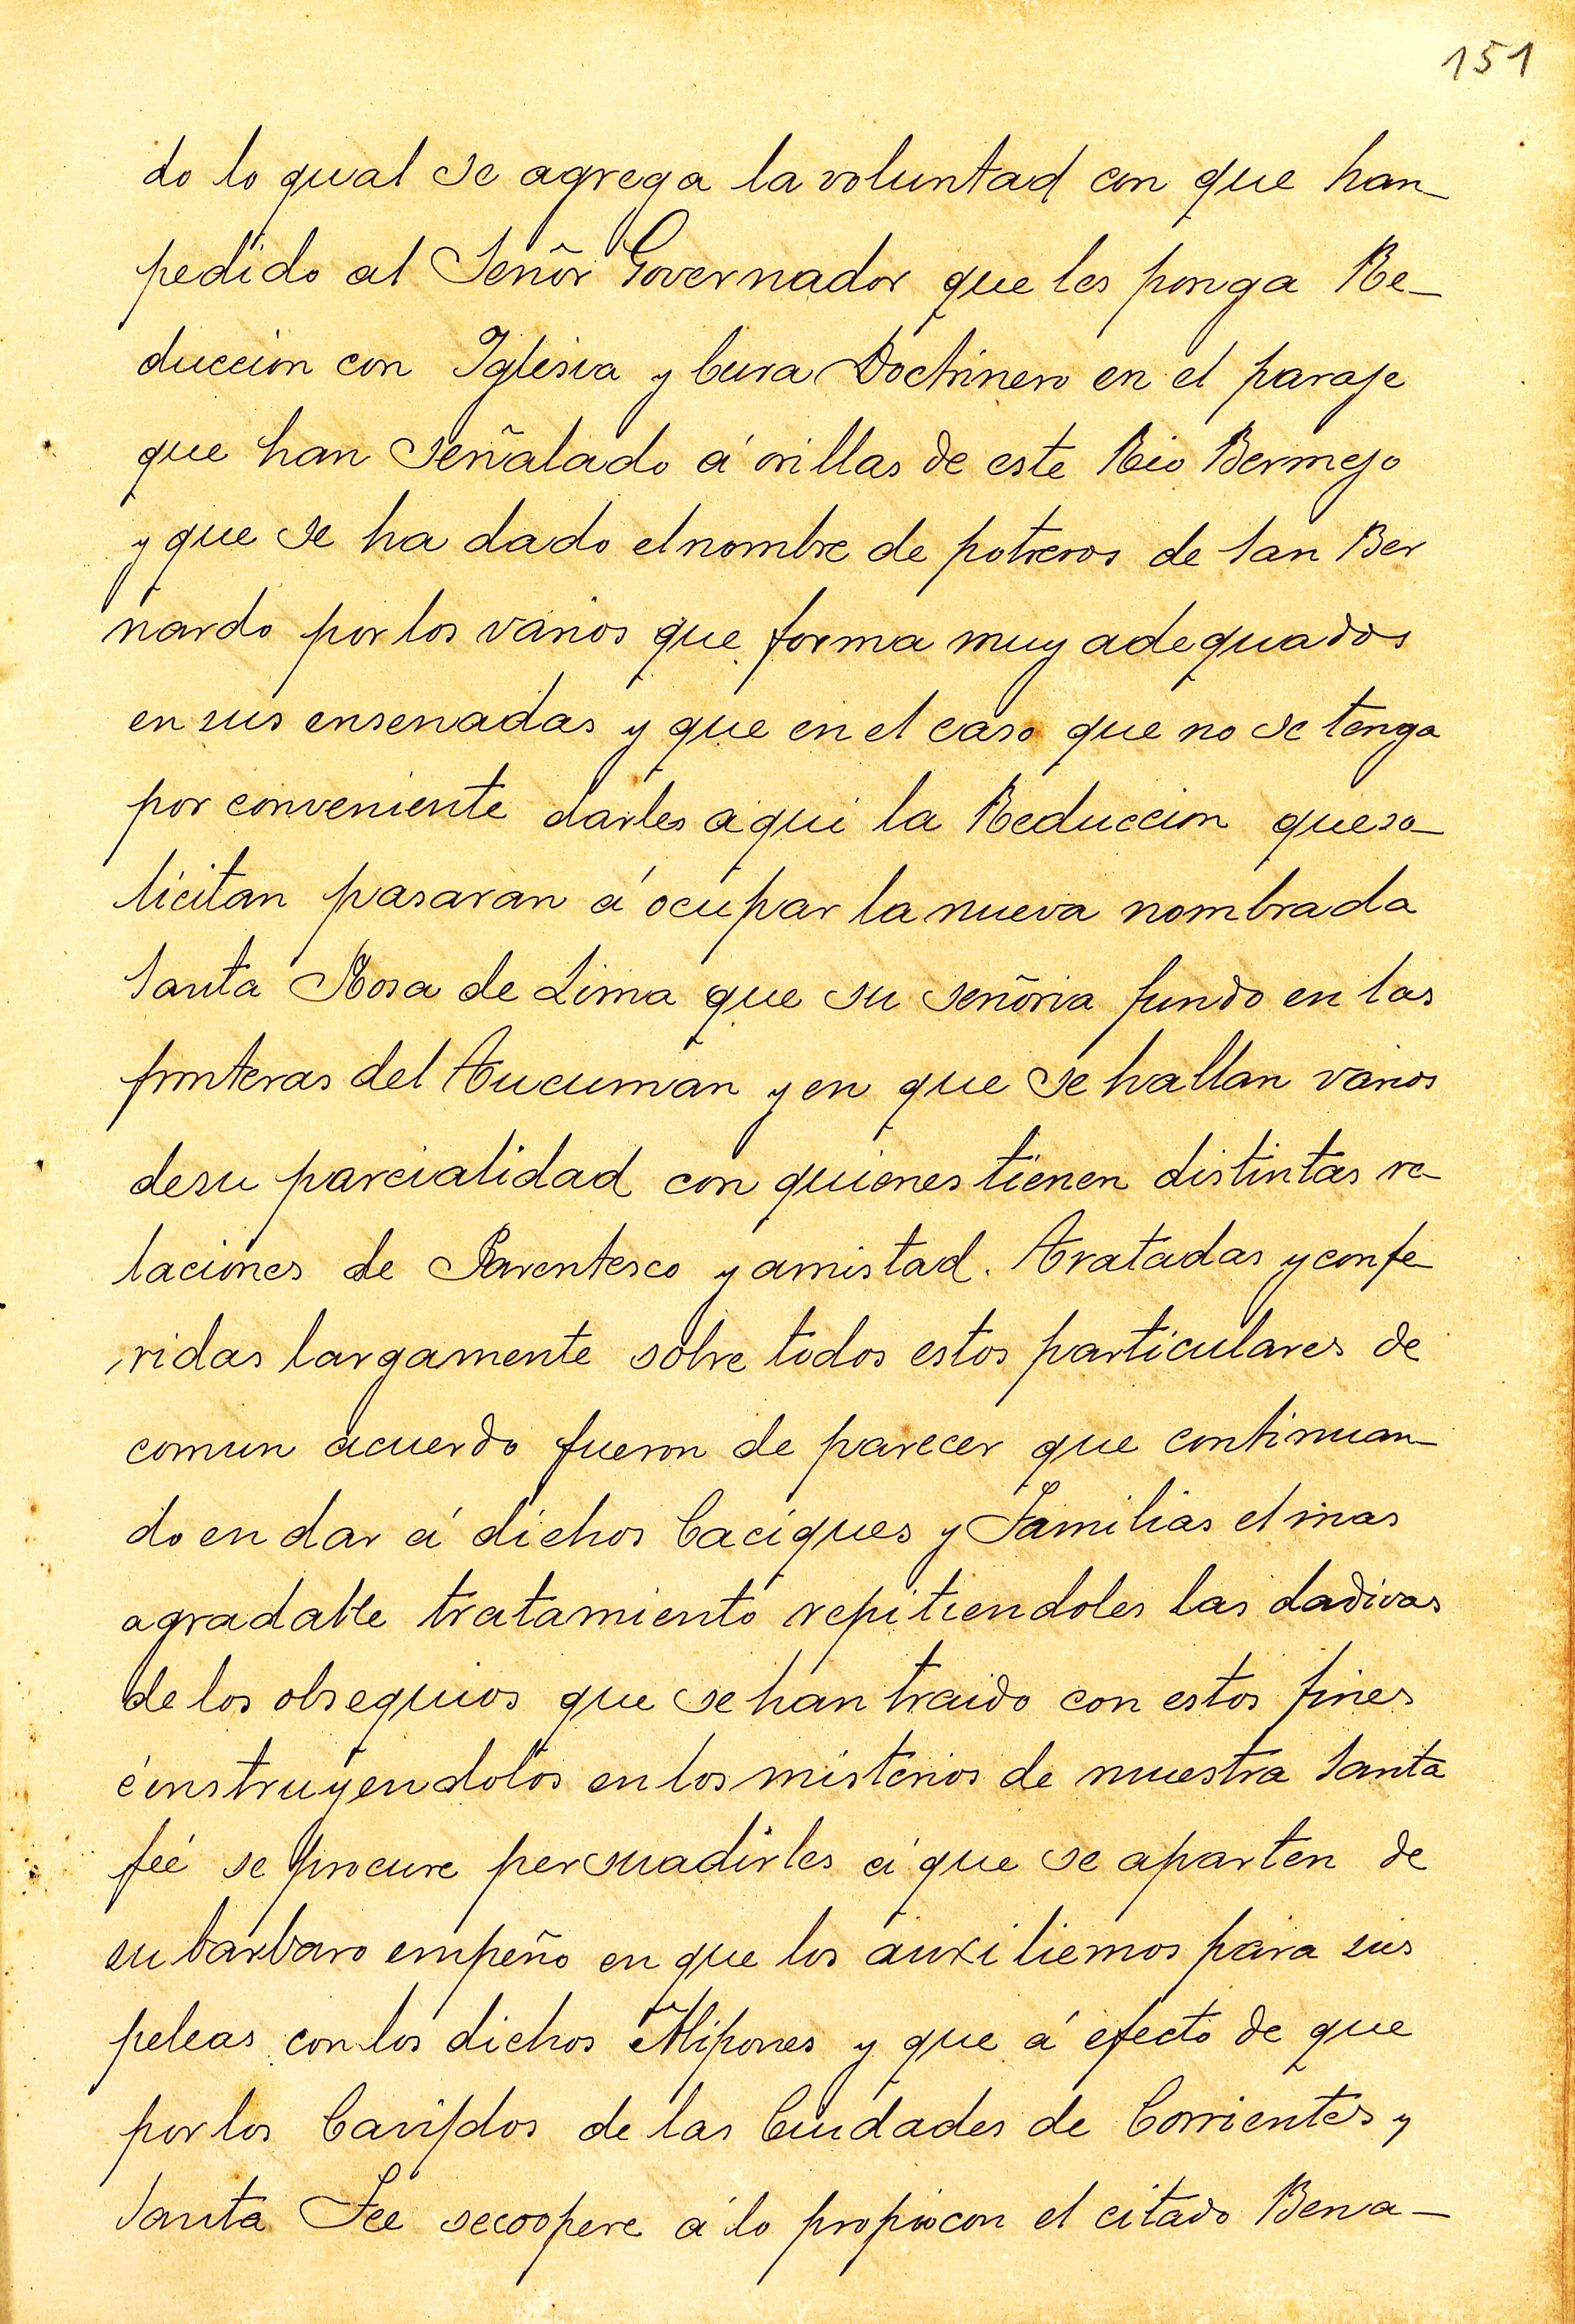 151
do lo qual se agrega la voluntad con que han_
pedido al Señor Governador que les ponga Re_
duccion con Iglesia y Cura Doctrinero en el paraje
que han señalado á orillas de este Rio Bermejo
y que se ha dado el nombre de potreros de San Ber
nardo por los varios que forma muy adequados
en sus ensenadas y que en el caso que no se tenga
por conveniente darles aqui la Reduccion que so_
licitan pasaran á ocupar la nueva nombrada
Santa Rosa de Lima que su señoria fundo en las
fronteras del Tucuman y en que se hallan varios
de su parcialidad con quienes tienen distintas re_
laciones de Parentesco y amistad. Tratadas y confe_
ridas largamente sobre todos estos particulares de
comun acuerdo fueron de parecer que continuan_
do en dar á dichos Caciques y Familias el mas
agradable tratamiento repitiendoles las dadivas
de los obsequios que se han traido con estos fines
é instruyendolos en los misterios de nuestra Santa
feé se procure persuadirles á que se aparten de
su barbaro empeño en que los auxiliemos para sus
peleas con los dichos Abipones y que á efecto de que
por los Cavildos de las Ciudades de Corrientes y
Santa Fee se coopere á lo propio con el citado Bena_